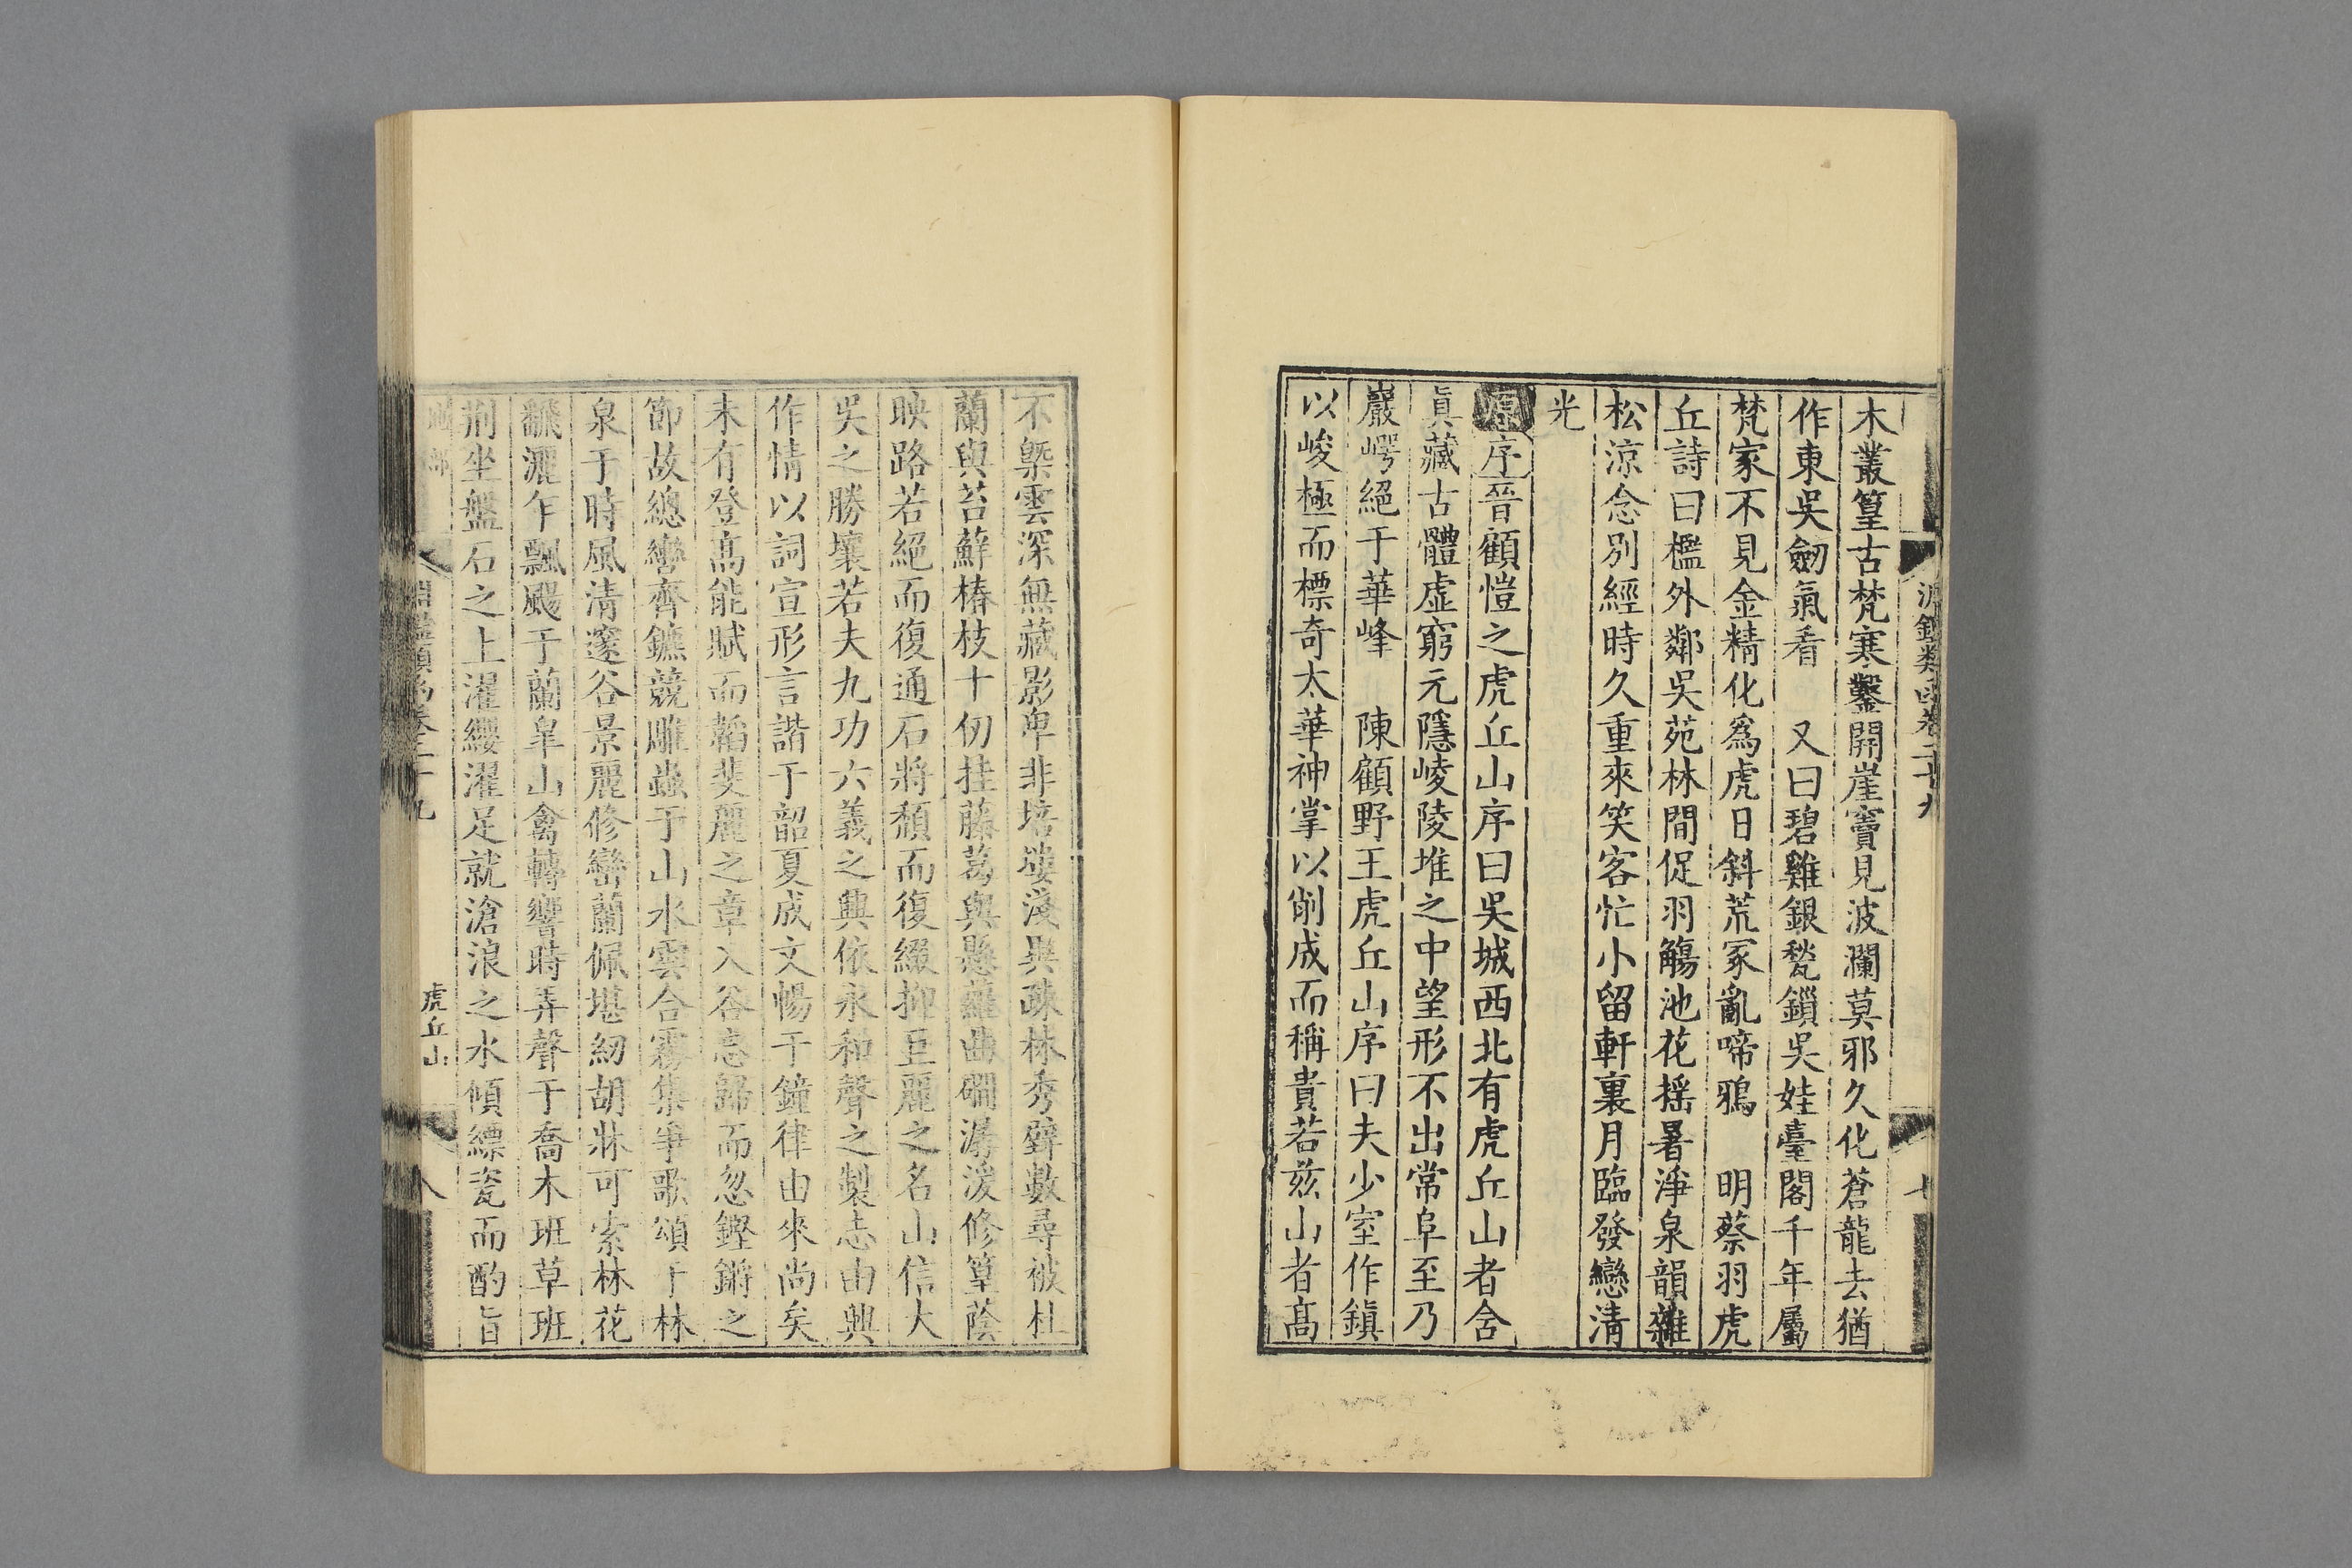 淵鑑類函卷二十九
七
木叢篁古梵寒鑿開崖竇見波瀾莫邪久化蒼龍去猶
作東吳劒氣看　又曰碧雞銀甃鎖吳娃臺閣千年屬
梵家不見金精化爲虎日斜荒冢亂啼鴉　明蔡羽虎
丘詩曰檻外鄰吳苑林間促羽觴池花摇暑淨泉韻雜
松涼念別經時久重來笑客忙小留軒裏月臨發戀清
光
原序晉顧愷之虎丘山序曰吳城西北有虎丘山者含
眞藏古體虛窮元隱崚陵堆之中望形不出常阜至乃
巖崿絕于華峰　陳顧野王虎丘山序曰夫少室作鎭
以峻極而標奇太華神掌以削成而稱貴若兹山者髙
不槩雲深無藏影卑非培塿淺異疎林秀壁數尋被杜
蘭與苔蘚椿枝十仞挂藤葛與懸蘿曲磵潺湲修篁蔭
映路若絕而復通石將頹而復綴抑巨麗之名山信大
吳之勝壤若夫九功六義之興依永和聲之製志由興
作情以詞宣形言諧于韶夏成文暢于鐘律由來尚矣
未有登髙能賦而韜斐麗之章入谷忘歸而忽鏗鏘之
節故總轡齊鑣競雕蟲于山水雲合霧集爭歌頌于林
泉于時風清邃谷景麗修巒蘭佩堪紉胡牀可索林花
飜灑乍飄颺于蘭皐山禽轉響時弄聲于喬木班草班
荆坐盤石之上濯纓濯足就滄浪之水傾縹瓷而酌旨
淵鑑類函卷二十九
虎丘山
八